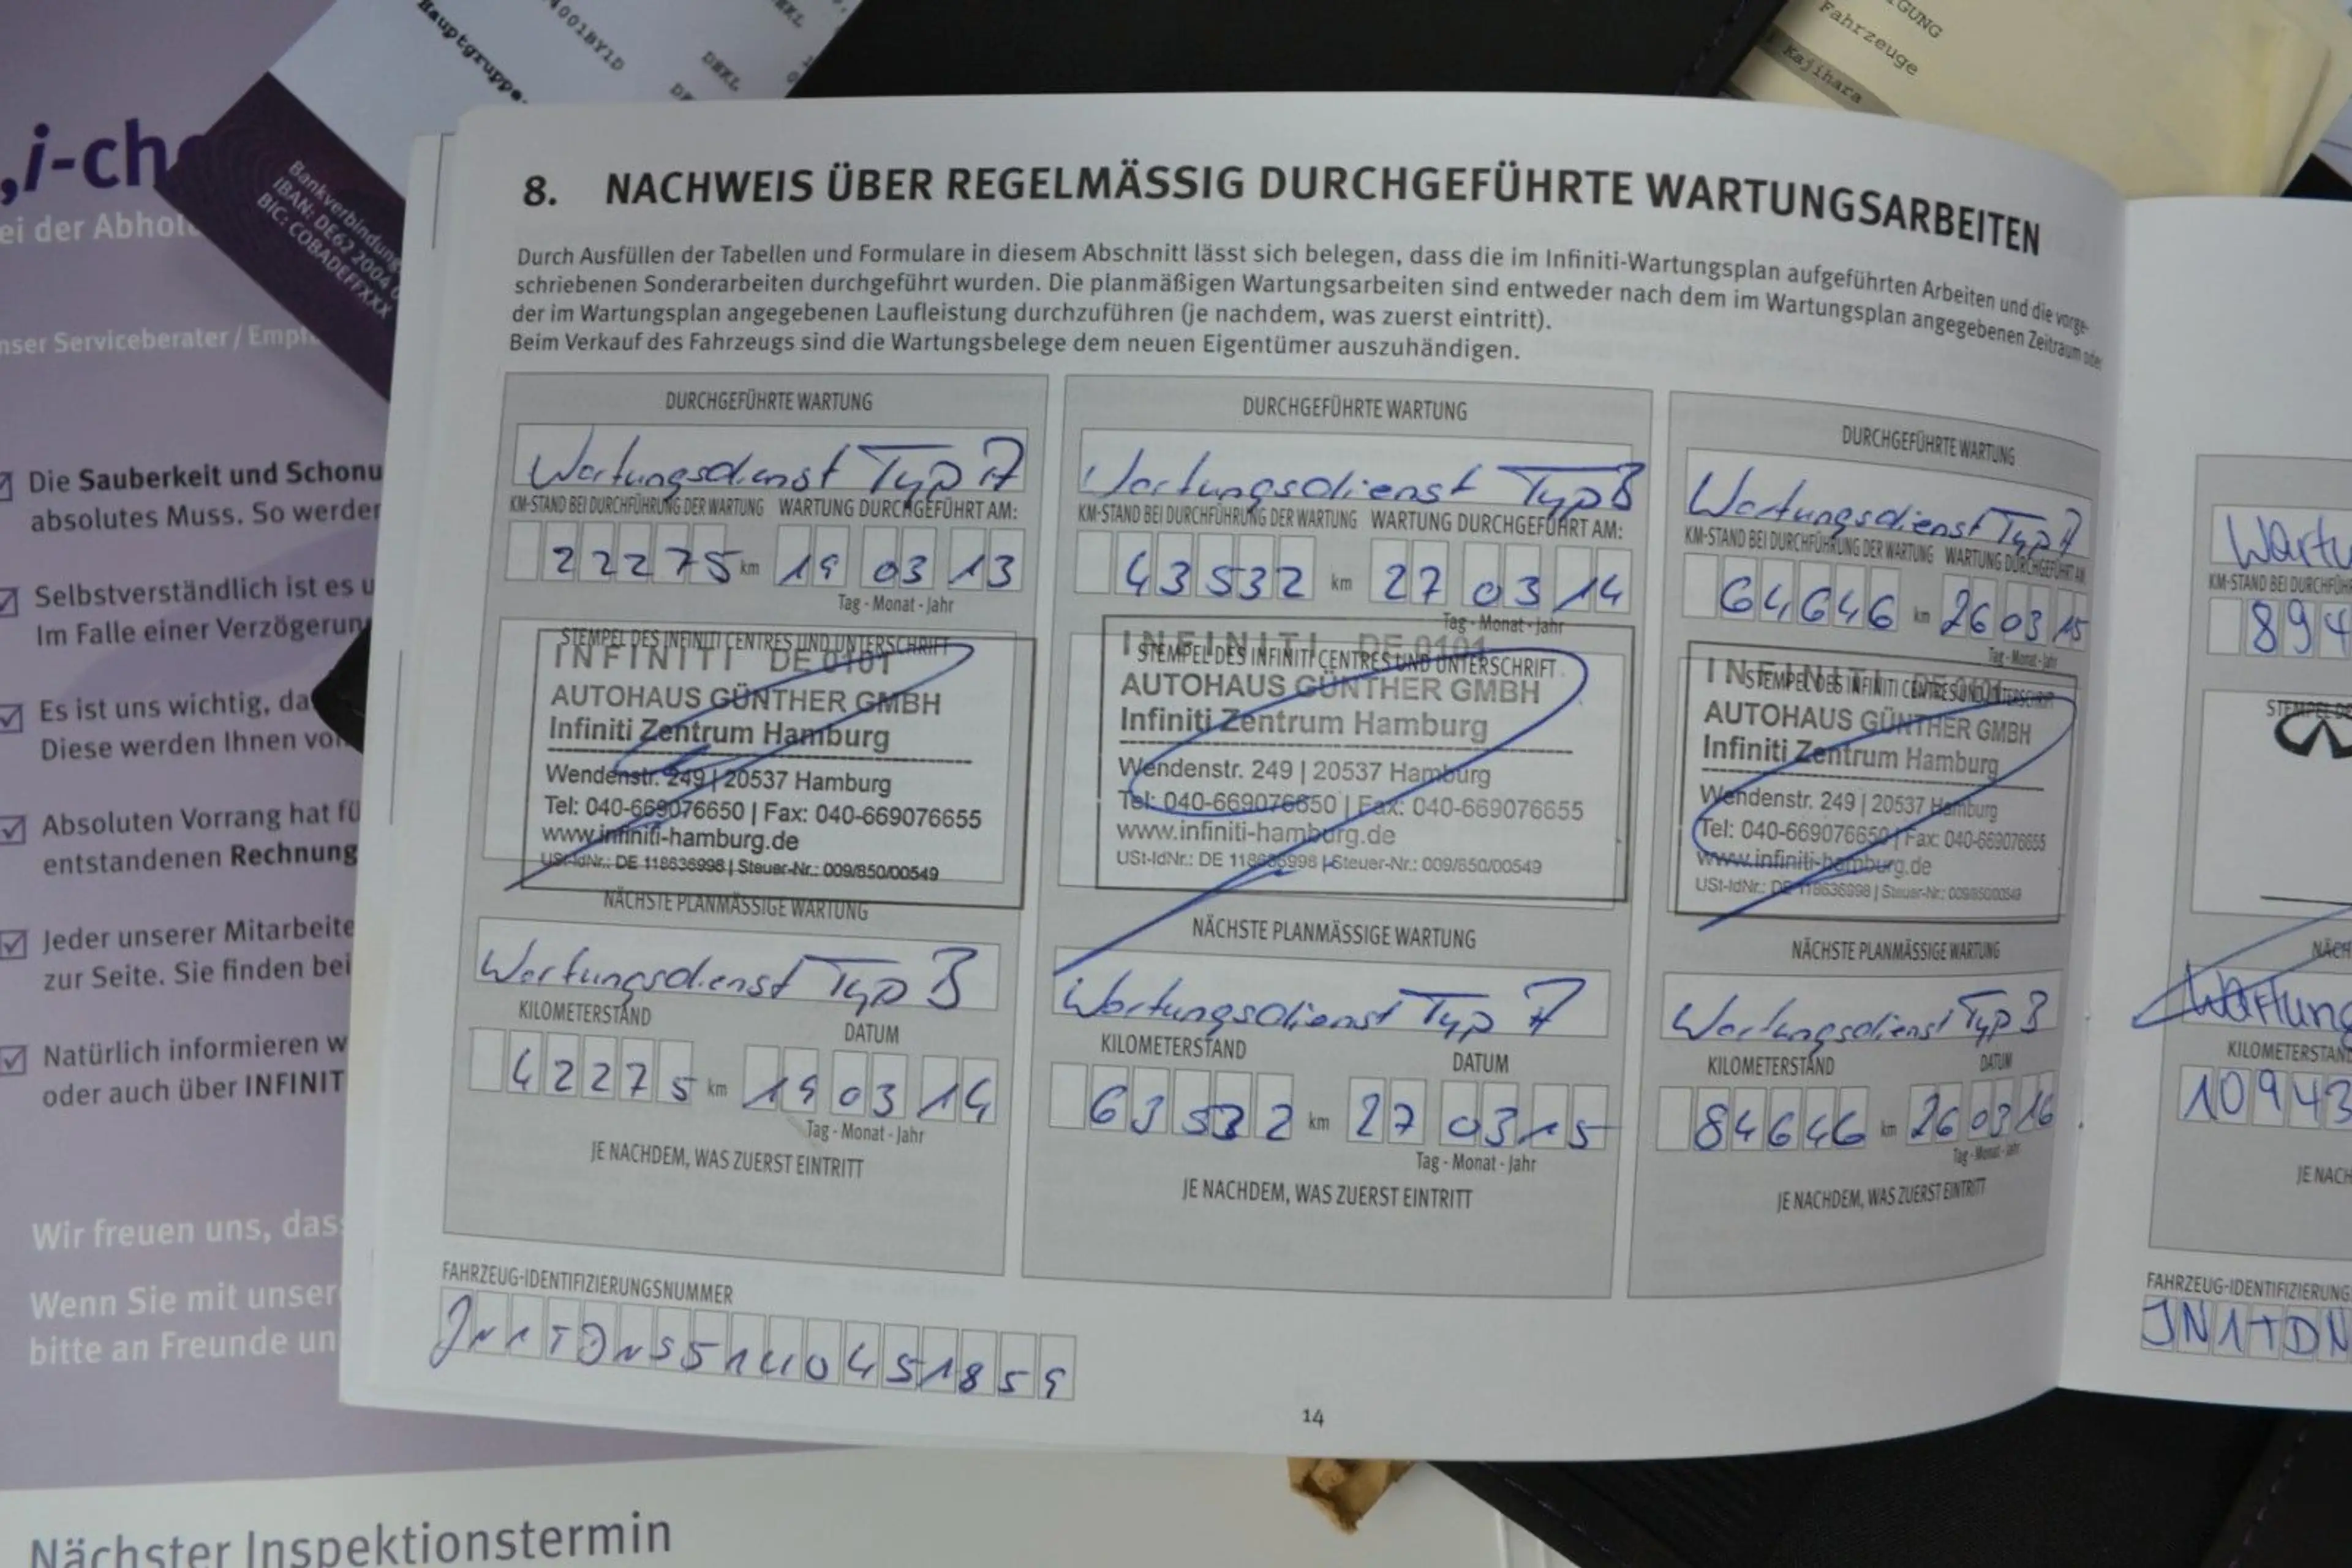 Hauptgruppe
4001BY1D
DEKL
DEKL
IGUNG
Fahrzeuge
Kajihara
„i-ch
ei der Abhol
nser Serviceberater / Empf
Bankverbindung
IBAN: DE62 2004 0
BIC: COBADEFFXXX
Die Sauberkeit und Schonu
absolutes Muss. So werder
Selbstverständlich ist es u
Im Falle einer Verzögerun
Es ist uns wichtig, da
Diese werden Ihnen von
Absoluten Vorrang hat fü
entstandenen Rechnung
Jeder unserer Mitarbeite
zur Seite. Sie finden bei
Natürlich informieren w
oder auch über INFINIT
Wir freuen uns, dass
Wenn Sie mit unser
bitte an Freunde un
Nächster Inspektionstermin
8. NACHWEIS ÜBER REGELMÄSSIG DURCHGEFÜHRTE WARTUNGSARBEITEN
Durch Ausfüllen der Tabellen und Formulare in diesem Abschnitt lässt sich belegen, dass die im Infiniti-Wartungsplan aufgeführten Arbeiten und die vorge-
schriebenen Sonderarbeiten durchgeführt wurden. Die planmäßigen Wartungsarbeiten sind entweder nach dem im Wartungsplan angegebenen Zeitraum oder
der im Wartungsplan angegebenen Laufleistung durchzuführen (je nachdem, was zuerst eintritt).
Beim Verkauf des Fahrzeugs sind die Wartungsbelege dem neuen Eigentümer auszuhändigen.
DURCHGEFÜHRTE WARTUNG
Wartungsdienst Typ A
KM-STAND BEI DURCHFÜHRUNG DER WARTUNG WARTUNG DURCHGEFÜHRT AM:
22275 km 19 03 13
Tag - Monat - Jahr
STEMPEL DES INFINITI CENTRES UND UNTERSCHRIFT
INFINITI DE 0101
AUTOHAUS GÜNTHER GMBH
Infiniti Zentrum Hamburg
Wendenstr. 249 | 20537 Hamburg
Tel: 040-669076650 | Fax: 040-669076655
www.infiniti-hamburg.de
USt-IdNr.: DE 118636998 | Steuer-Nr.: 009/850/00549
NÄCHSTE PLANMÄSSIGE WARTUNG
Wartungsdienst Typ B
KILOMETERSTAND DATUM
42275 km 19 03 14
Tag - Monat - Jahr
JE NACHDEM, WAS ZUERST EINTRITT
DURCHGEFÜHRTE WARTUNG
Wartungsdienst Typ B
KM-STAND BEI DURCHFÜHRUNG DER WARTUNG WARTUNG DURCHGEFÜHRT AM:
43532 km 27 03 14
Tag - Monat - Jahr
STEMPEL DES INFINITI CENTRES UND UNTERSCHRIFT
INFINITI DE 0101
AUTOHAUS GÜNTHER GMBH
Infiniti Zentrum Hamburg
Wendenstr. 249 | 20537 Hamburg
Tel: 040-669076650 | Fax: 040-669076655
www.infiniti-hamburg.de
USt-IdNr.: DE 118636998 | Steuer-Nr.: 009/850/00549
NÄCHSTE PLANMÄSSIGE WARTUNG
Wartungsdienst Typ A
KILOMETERSTAND DATUM
63532 km 27 03 15
Tag - Monat - Jahr
JE NACHDEM, WAS ZUERST EINTRITT
DURCHGEFÜHRTE WARTUNG
Wartungsdienst Typ A
KM-STAND BEI DURCHFÜHRUNG DER WARTUNG WARTUNG DURCHGEFÜHRT AM:
64646 km 26 03 15
Tag - Monat - Jahr
STEMPEL DES INFINITI CENTRES UND UNTERSCHRIFT
INFINITI DE 0101
AUTOHAUS GÜNTHER GMBH
Infiniti Zentrum Hamburg
Wendenstr. 249 | 20537 Hamburg
Tel: 040-669076650 | Fax: 040-669076655
www.infiniti-hamburg.de
USt-IdNr.: DE 118636998 | Steuer-Nr.: 009/850/00549
NÄCHSTE PLANMÄSSIGE WARTUNG
Wartungsdienst Typ B
KILOMETERSTAND DATUM
84646 km 26 03 16
Tag - Monat - Jahr
JE NACHDEM, WAS ZUERST EINTRITT
FAHRZEUG-IDENTIFIZIERUNGSNUMMER
JN1TDNS51U0451859
14
Wartu
KM-STAND BEI DURCHFÜHR
894
STEMPEL DE
NÄCH
Wartung
KILOMETERSTAN
10943
JE NACH
FAHRZEUG-IDENTIFIZIERUNG
JN1TDN